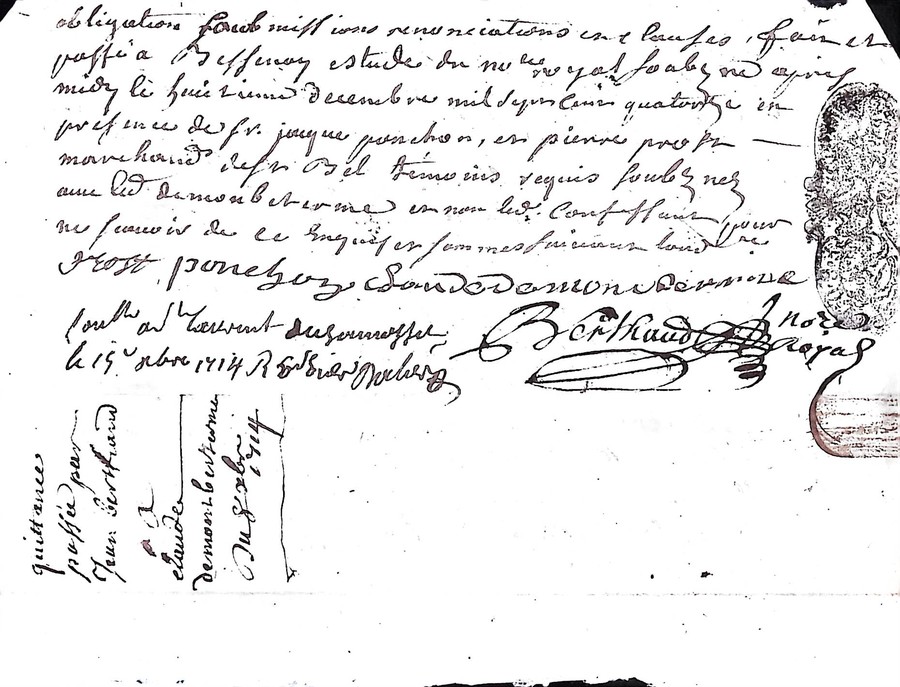 obligation soubmissions renonciations et clauses, fait et
passé a Bessenay estude du no.re royal soubz.né apres
midy le huitieme decembre mil sept cent quatorze en
presence de sr. jaque ponchon, et pierre prost
marchand de st Bel témoins requis soubz.nez
avec led demonbeterme et non led. Bert
ne scavoir de ce enquis et sommes suivant lord.ce
Prost ponchon Claude demonbeterme
Berthaud no.re
Royal
Conlle a
le 15e xbre 1714 R
quittance
passée par
Jean Berthaud
a
claude
demontbeterme
Du 8 xbre
1714